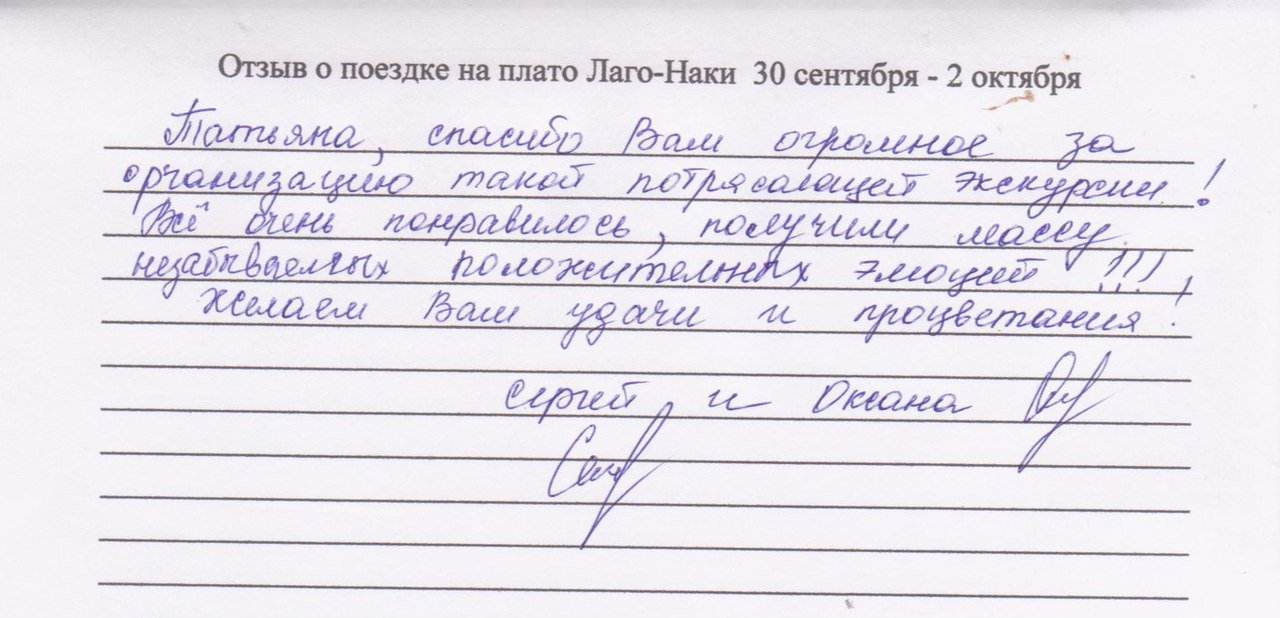 Отзыв о поездке на плато Лаго-Наки 30 сентября - 2 октября
Татьяна, спасибо Вам огромное за
организацию такой потрясающей экскурсии!
Всё очень понравилось, получили массу
незабываемых положительных эмоций !!!
Желаем Вам удачи и процветания!
Сергей и Оксана